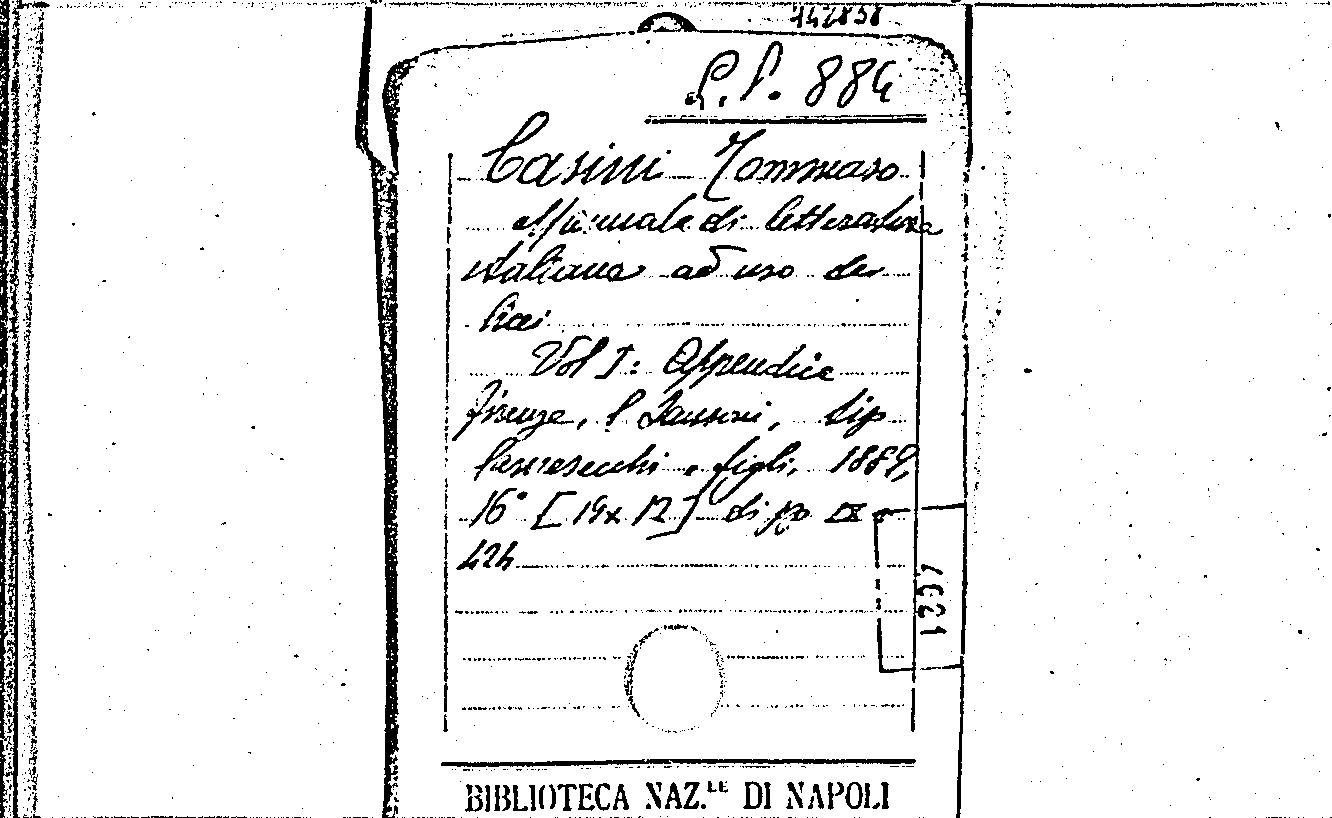 142838
L.P. 884
Casini Tommaso
Manuale di letteratura
italiana ad uso dei
licei
Vol I: Appendice
Firenze, Sansoni, tip
Carnesecchi e figli, 1889,
16° [19x12] di pp IX -
424
BIBLIOTECA NAZ.LE DI NAPOLI